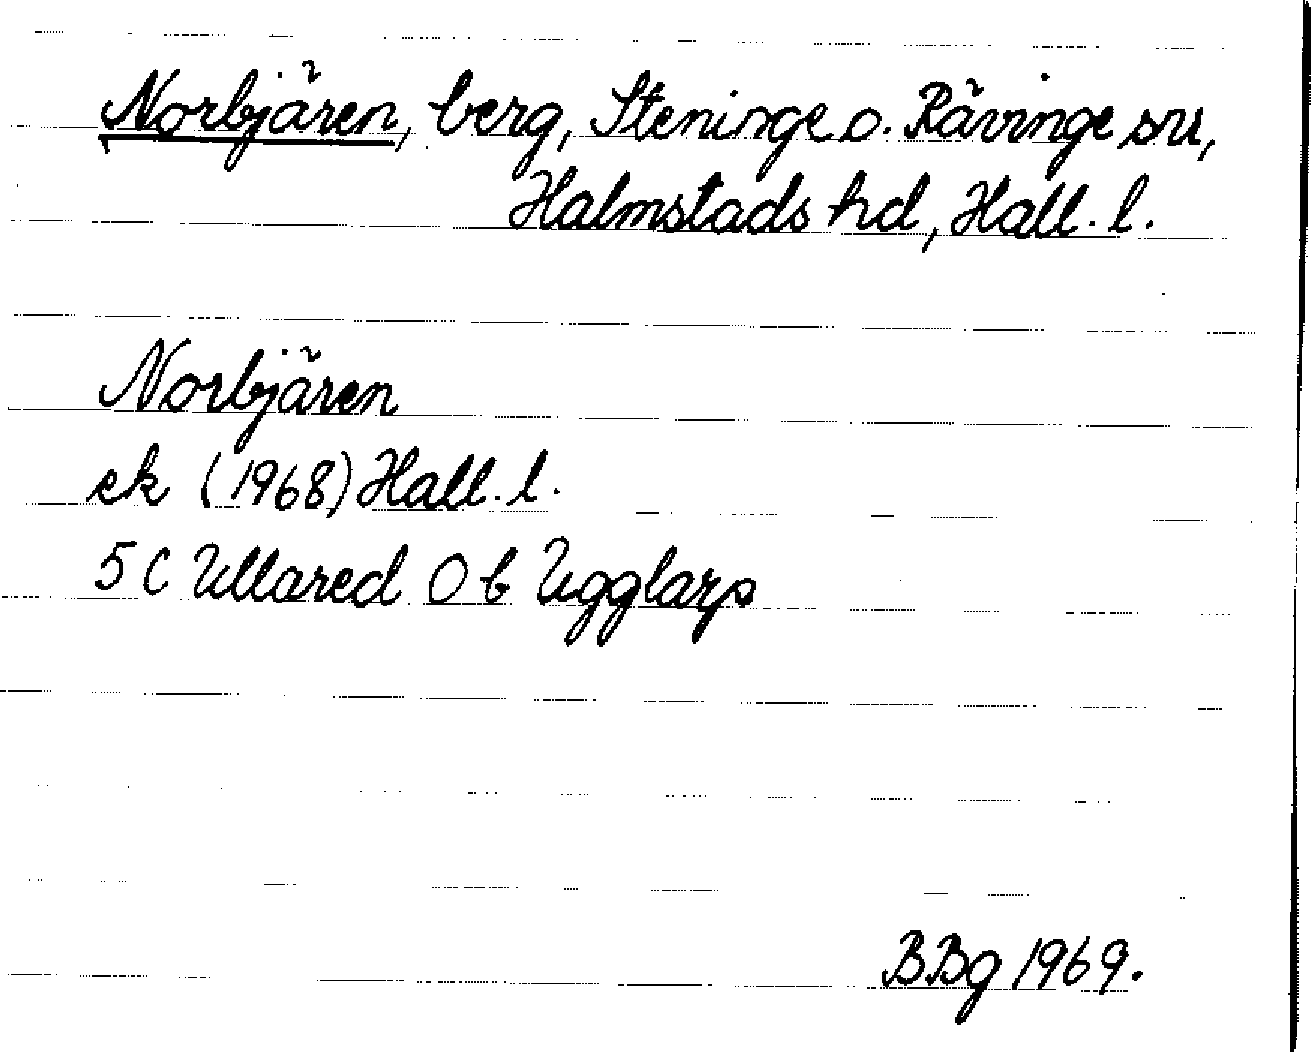 Norbjären, berg, Steninge o. Rävinge snr,
Halmstads hd, Hall. l.
Norbjären
ek (1968) Hall. l.
5 C Ullared O b Ugglarp
BBg 1969.